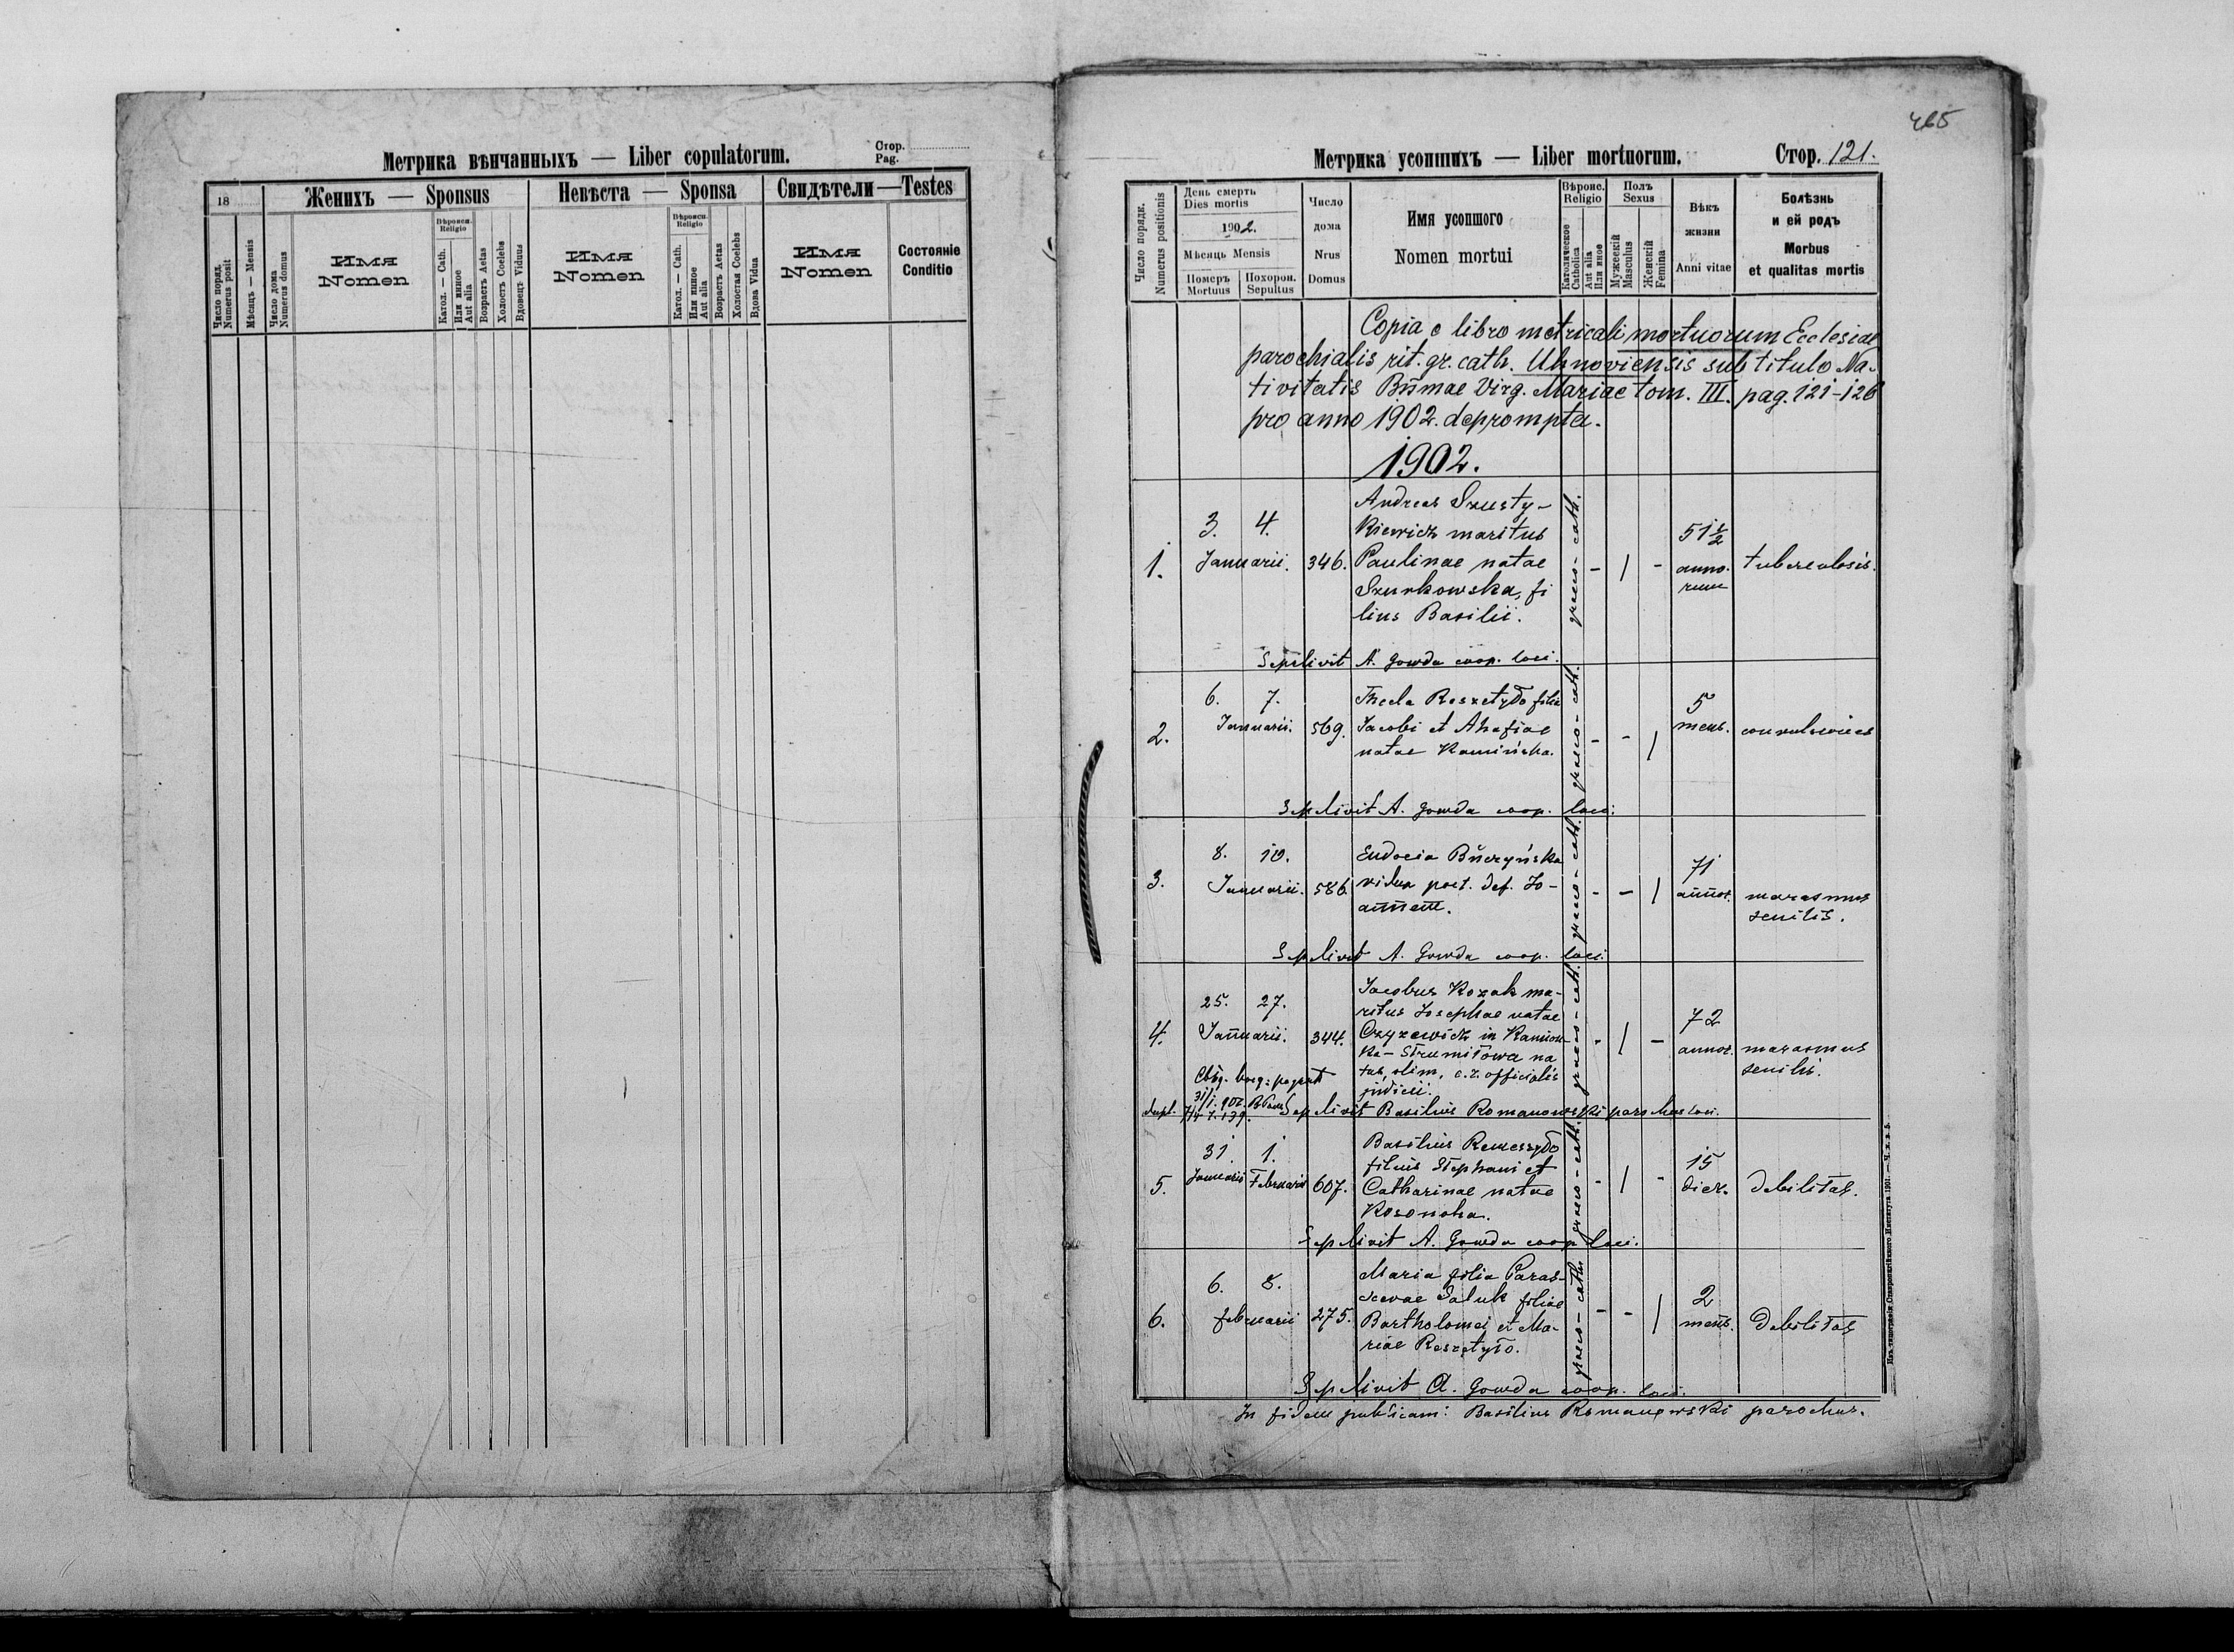 Метрика вѣнчанныхъ — Liber copulatorum.
Стор.
Pag.
18
Женихъ — Sponsus
Невѣста — Sponsa
Свидѣтели — Testes
Число поряд.
Numerus posit
Мѣсяцъ — Mensis
Число дома
Numerus domus
Имя
Nomen
Вѣроисп.
Religio
Катол. — Cath.
Или инное
Aut alia
Возрастъ Aetas
Холостъ Coelebs
Вдовецъ Viduus
Имя
Nomen
Вѣроисп.
Religio
Катол. — Cath.
Или инное
Aut alia
Возрастъ Aetas
Холостая Coelebs
Вдова Vidua
Имя
Nomen
Состояніе
Conditio
465
Метрика усопшихъ — Liber mortuorum.
Стор. 121.
Число порядк.
Numerus positionis
День смерть
Dies mortis
1902.
Мѣсяць Mensis
Померъ
Mortuus
Похорон.
Sepultus
Число
дома
Nrus
Domus
Имя усопшого
Nomen mortui
Вѣроис.
Religio
Католическое
Catholica
Aut alia
Или иное
Полъ
Sexus
Мужескій
Masculus
Женскій
Femina
Вѣкъ
жизни
Anni vitae
Болѣзнь
и ей родъ
Morbus
et qualitas mortis
Copia e libro metricali mortuorum Ecclesiae
parochialis rit. gr. cath. Uhnoviensis sub titulo Na-
tivitatis Bñmae Virg. Mariae tom. III. pag. 121-126
pro anno 1902. deprompta.
1902.
1.
3. 4.
Januarii.
346.
Andreas Szusty-
kiewicz maritus
Paulinae natae
Szunkowska, fi
lius Basilii.
graeco-cath.
- / -
51 1/2
anno-
rum
tuberculosis.
Sepelivit A. Gowda coop. loci.
2.
6. 7.
Januarii.
569.
Thecla Reszetyło filia
Jacobi et Ahafiae
natae Kamińska.
graeco-cath.
- - /
5
mens.
convulsiones
Sepelivit A. Gowda coop. loci.
3.
8. 10.
Januarii.
586.
Eudocia Buczyńska
vidua post. def. Jo-
annem.
graeco-cath.
- - /
71
annor.
marasmus
senilis.
Sepelivit A. Gowda coop. loci.
4.
25. 27.
Januarii.
344.
Jacobus Kozak ma-
ritus Josephae natae
Czyzewicz in Kamion-
ka-Strumiłowa na
tus, olim, c.r. officialis
judicii.
graeco-cath.
- / -
72
annor.
marasmus
senilis.
31/1. 902
Sepelivit Basilius Romanowski parochus loci.
5.
31 1.
Januarii Februarii
607.
Basilius Remeszyło
filius Stephani et
Catharinae natae
Kosonoha.
graeco-cath.
- / -
15
dier.
debilitas.
Sepelivit A. Gowda coop loci.
6.
6. 8.
februarii
275.
Maria filia Paras-
cevae Saluk filiae
Bartholomei et Ma-
riae Reszetyło.
graeco-cath.
- - /
2
mens.
debilitas
Sepelivit A. Gowda coop. loci.
In fidem publicam: Basilius Romanowski parochus.
Изъ типографіи Ставропигійского Института 1901.